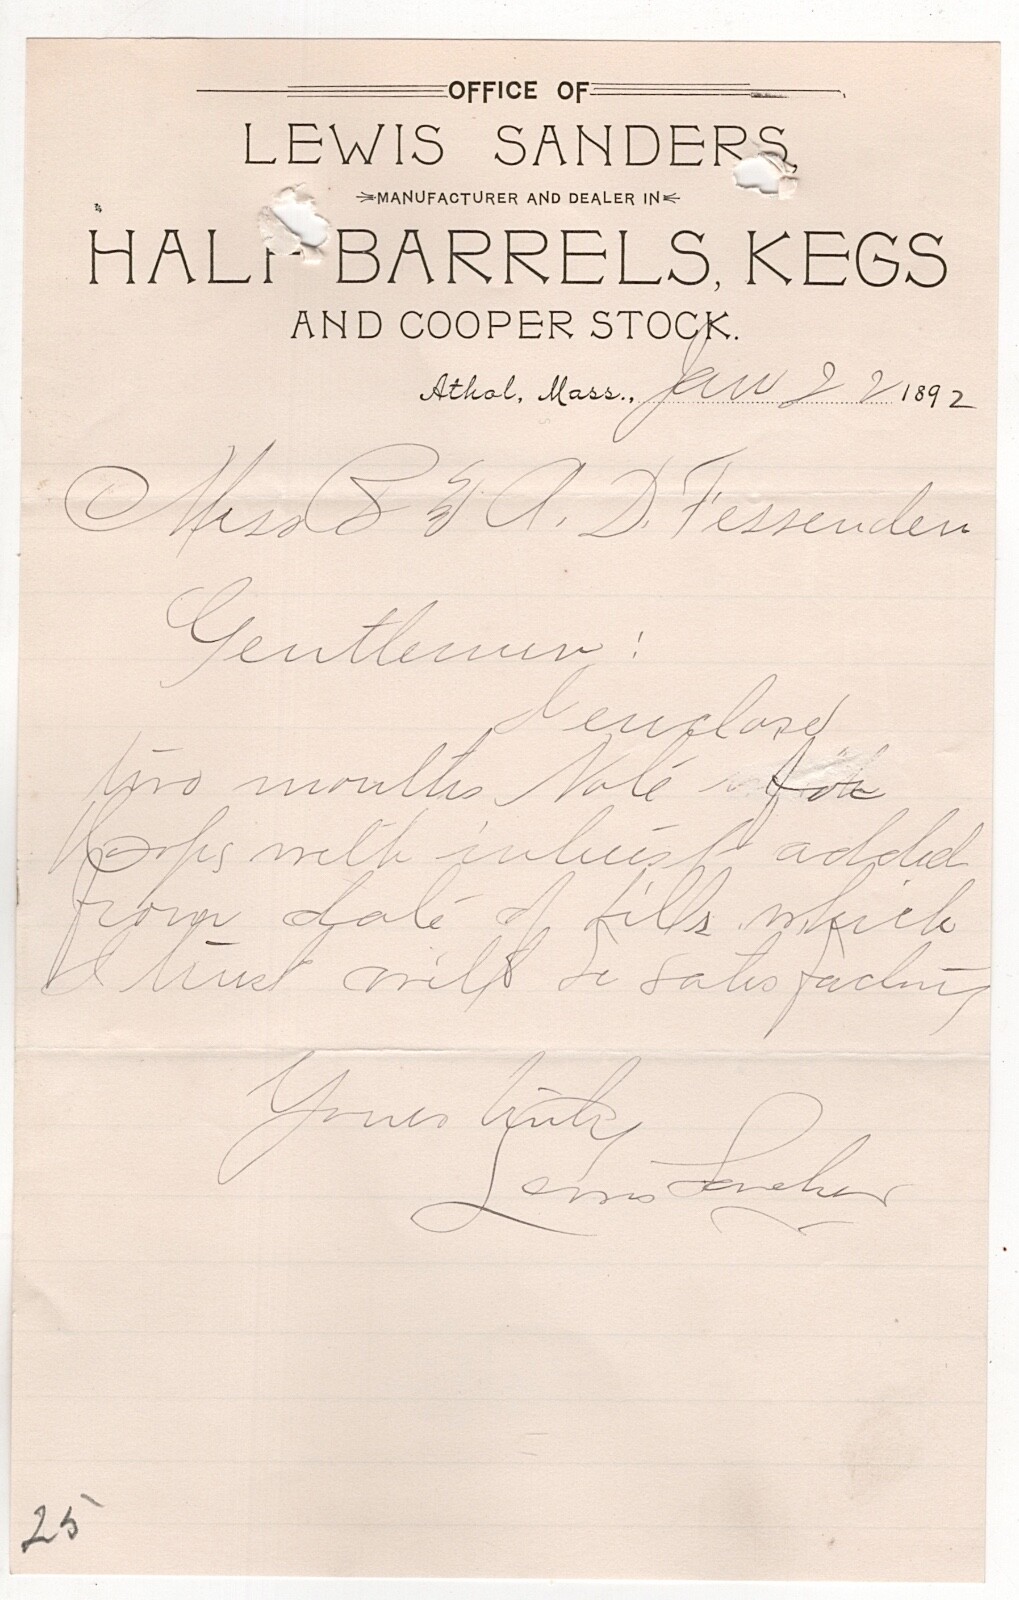 OFFICE OF
LEWIS SANDERS,
MANUFACTURER AND DEALER IN
HALF BARRELS, KEGS
AND COOPER STOCK.
Athol, Mass., Jan 22 1892
Mess B & A. D. Fessenden
Gentlemen:
I enclose
two months Note for
Hoops with interest added
from date of bills which
I trust will be satisfactory
Yours truly
Lewis Sanders
25